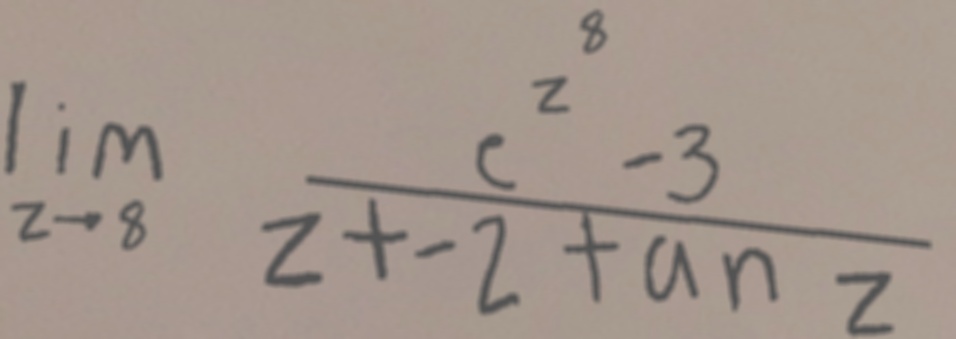 \lim_{z \to 8} \frac{e^{z^{8}} - 3}{z + -2 \tan z}